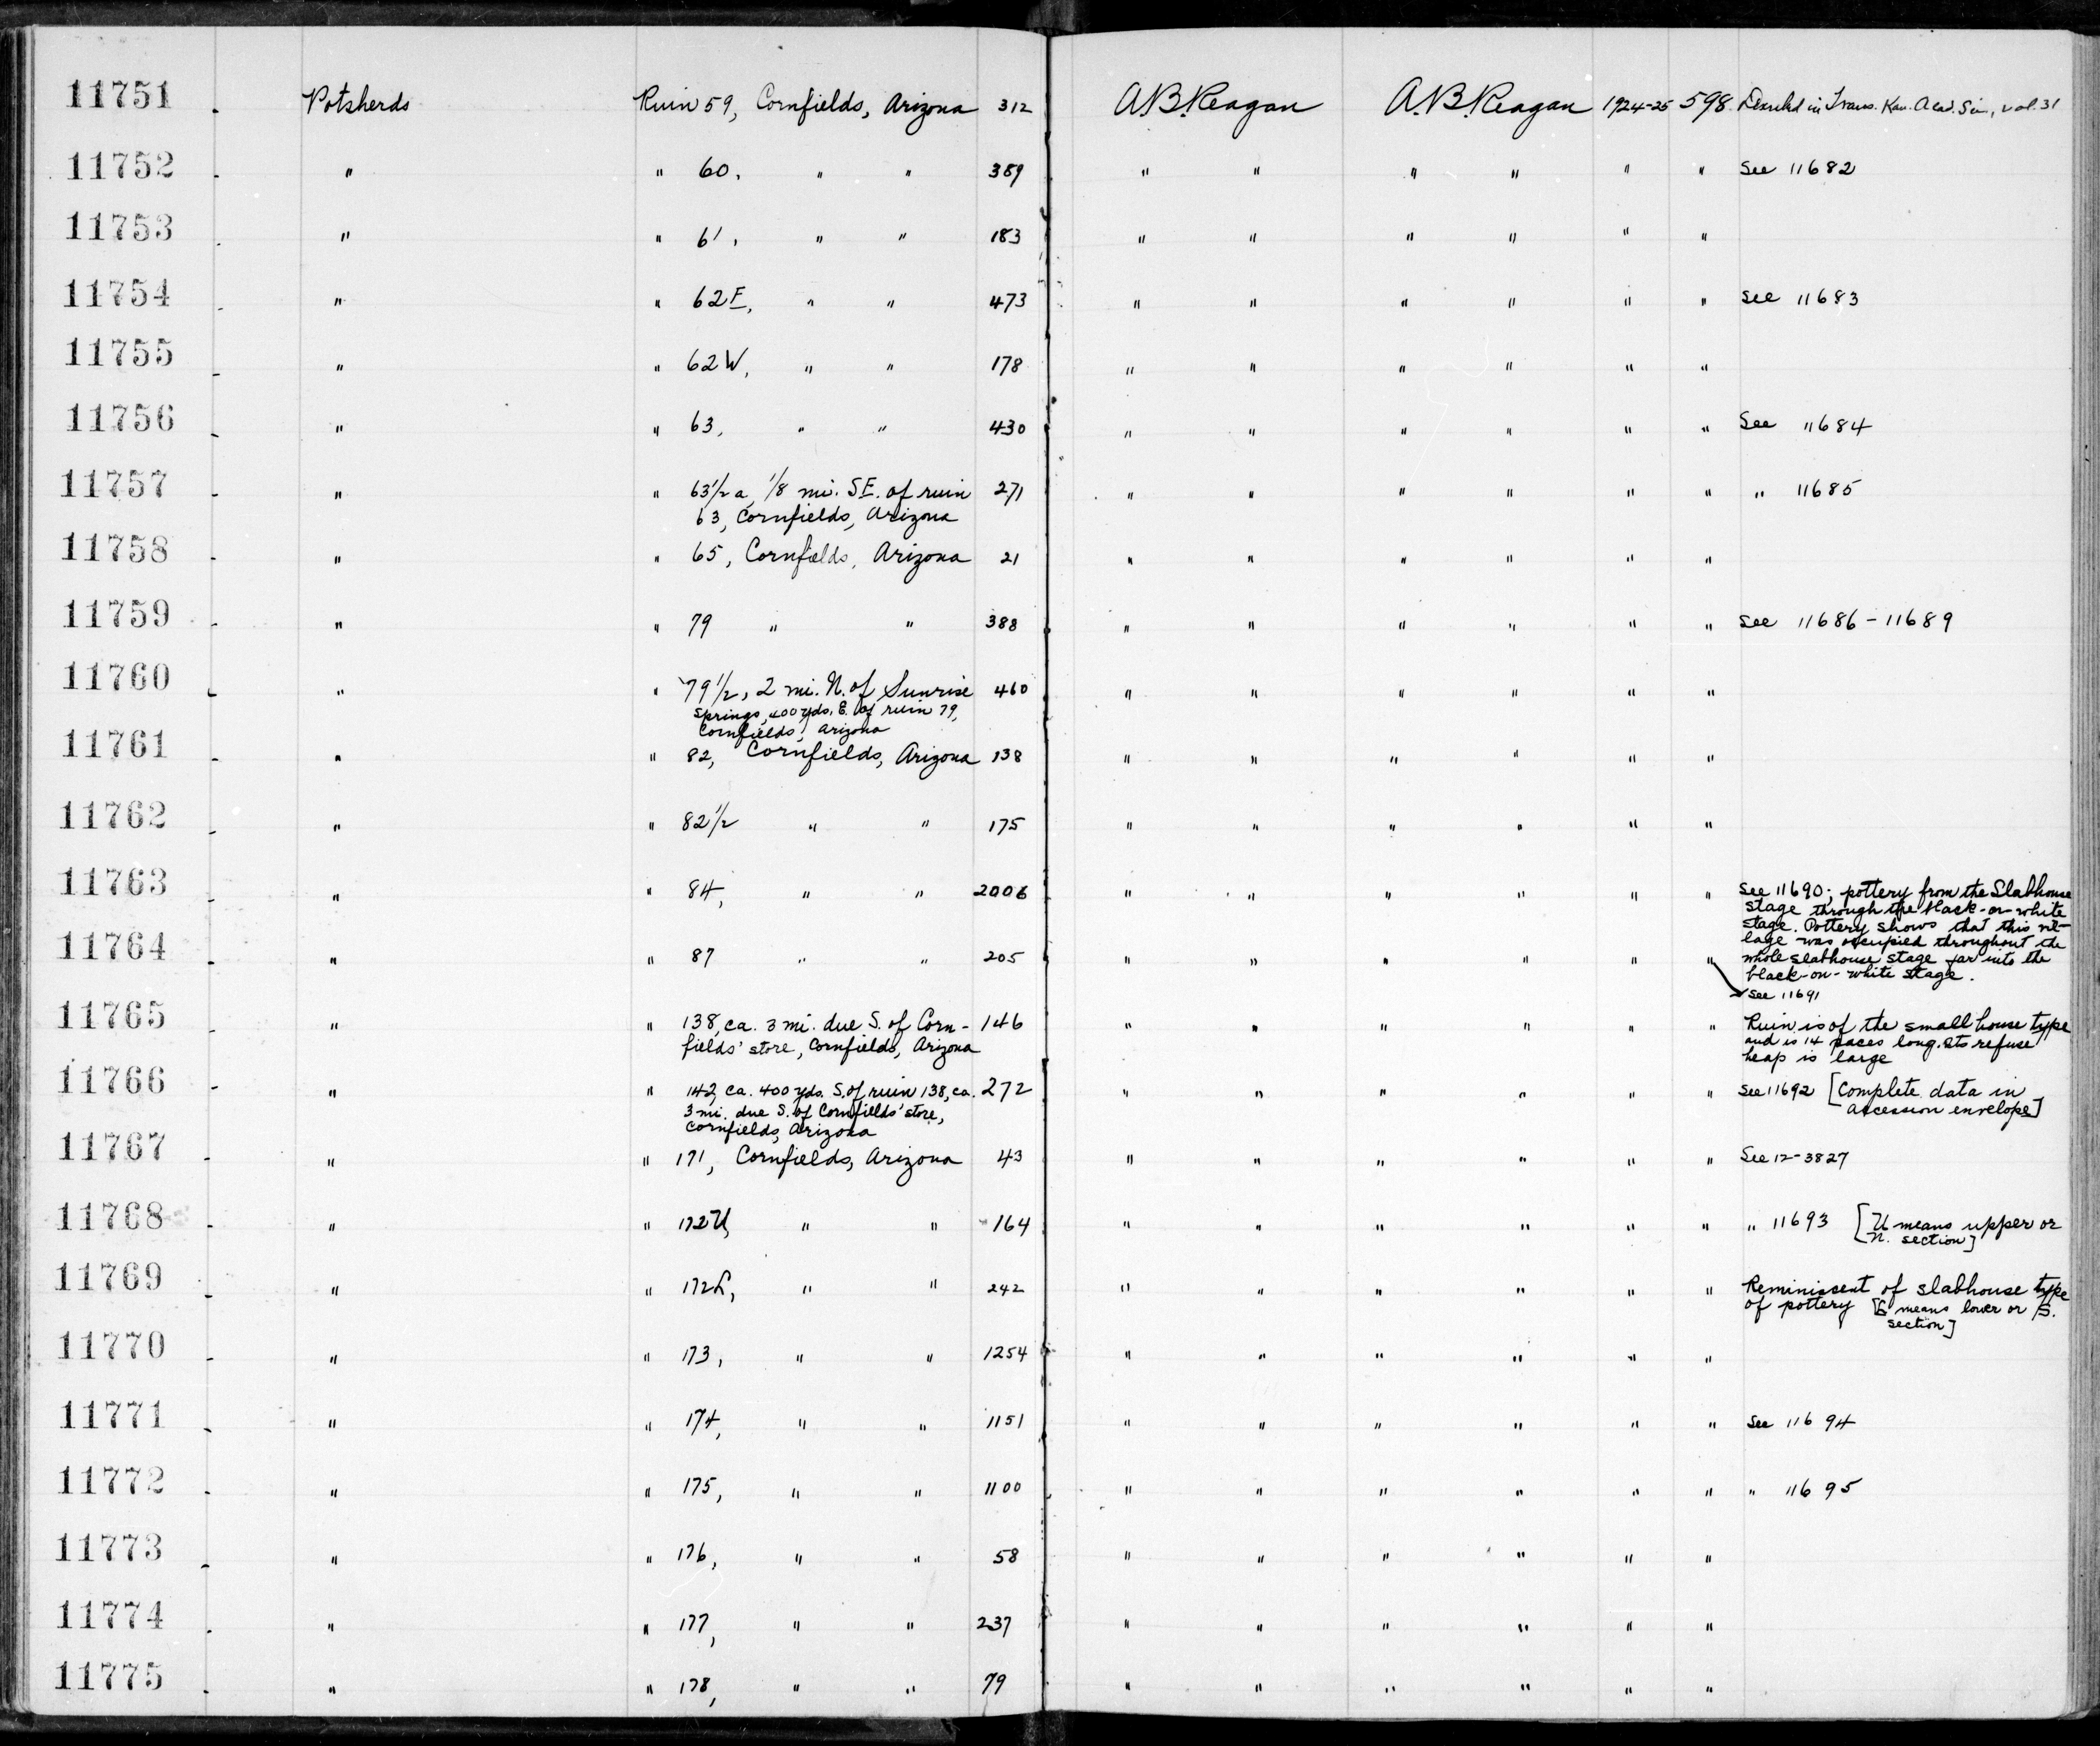 11751 Potsherds Ruin 59, Cornfields, Arizona 312 A.B. Reagan A.B. Reagan 1924-25 598 in Trans. Kan. Acad. Sci., vol. 31
11752 " " 60, " " 389 " " " " " " See 11682
11753 " " 61, " " 183 " " " " " "
11754 " " 62E, " " 473 " " " " " " See 11683
11755 " " 62W, " " 178 " " " " " "
11756 " " 63, " " 430 " " " " " " See 11684
11757 " " 63 1/2 a, 1/8 mi. SE. of ruin 271 " " " " " " " 11685
63, Cornfields, Arizona
11758 " " 65, Cornfields, Arizona 21 " " " " " "
11759 " " 79 " " 388 " " " " " " See 11686-11689
11760 " " 79 1/2, 2 mi. N. of Sunrise 460 " " " " " "
Springs, 400 yds. E. of ruin 79,
Cornfields, Arizona
11761 " " 82, Cornfields, Arizona 138 " " " " " "
11762 " " 82 1/2 " " 175 " " " " " "
11763 " " 84, " " 2006 " " " " " " See 11690; pottery from the Slabhouse
stage through the black-on-white
stage. Pottery shows that this vil-
lage was occupied throughout the
whole slabhouse stage far into the
black-on-white stage.
11764 " " 87 " " 205 " " " " " " See 11691
11765 " " 138, ca. 3 mi. due S. of Corn- 146 " " " " " " Ruin is of the small house type
fields' store, Cornfields, Arizona and is 14 paces long. Its refuse
heap is large
11766 " " 142, ca. 400 yds. S. of ruin 138, ca. 272 " " " " " " See 11692 [Complete data in
3 mi. due S. of Cornfields' store, accession envelope]
Cornfields, Arizona
11767 " " 171, Cornfields, Arizona 43 " " " " " " See 12-3827
11768 " " 172U, " " 164 " " " " " " " 11693 [U means upper or
N. section]
11769 " " 172L, " " 242 " " " " " " Reminiscent of slabhouse type
of pottery [L means lower or S.
section]
11770 " " 173, " " 1254 " " " " " "
11771 " " 174, " " 1151 " " " " " " See 11694
11772 " " 175, " " 1100 " " " " " " " 11695
11773 " " 176, " " 58 " " " " " "
11774 " " 177, " " 237 " " " " " "
11775 " " 178, " " 79 " " " " " "